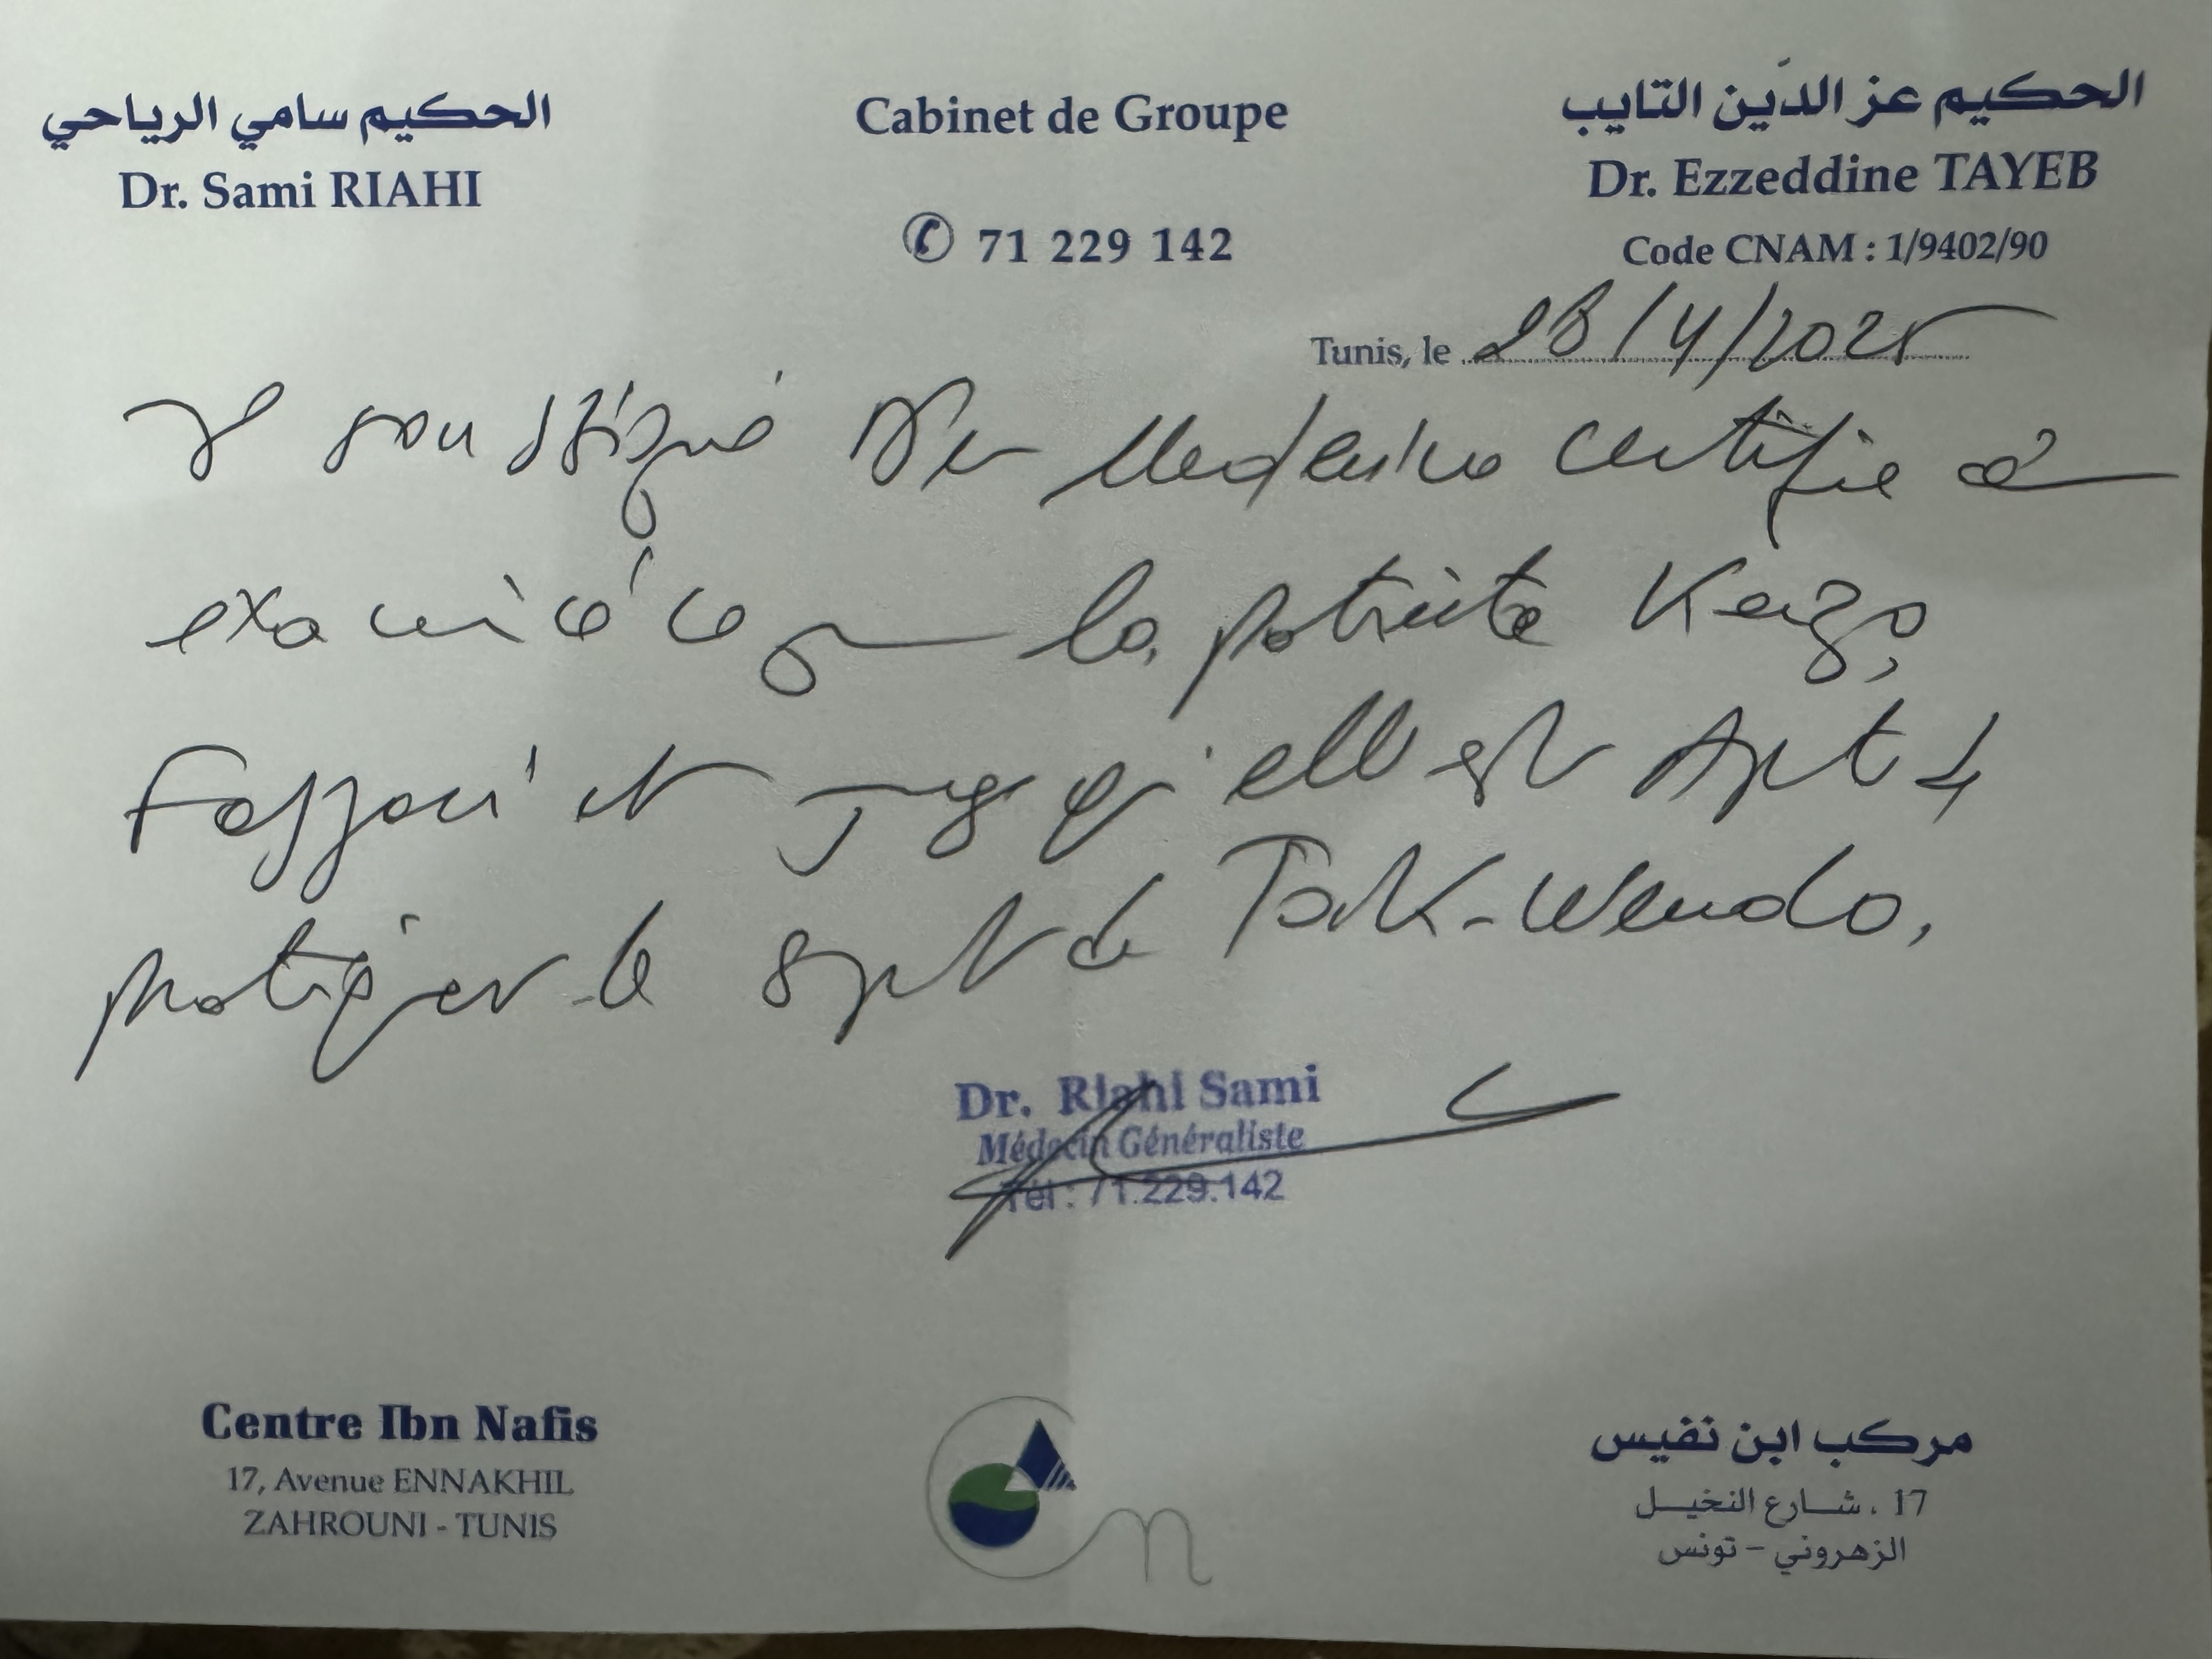 الحكيم سامي الرياحي
Dr. Sami RIAHI
Cabinet de Groupe
71 229 142
الحكيم عز الدّين التايب
Dr. Ezzeddine TAYEB
Code CNAM : 1/9402/90
Tunis, le 28/4/2025
Je soussigné Dr en Medecine certifie a
examiné ce jour la petite Kenza
et juge qu'elle est Apte à
pratiquer le sport de Taek-Wendo,
Dr. Riahi Sami
Médecin Généraliste
Tél : 71.229.142
Centre Ibn Nafis
17, Avenue ENNAKHIL
ZAHROUNI - TUNIS
مركب ابن نفيس
17 ، شارع النخيل
الزهروني - تونس